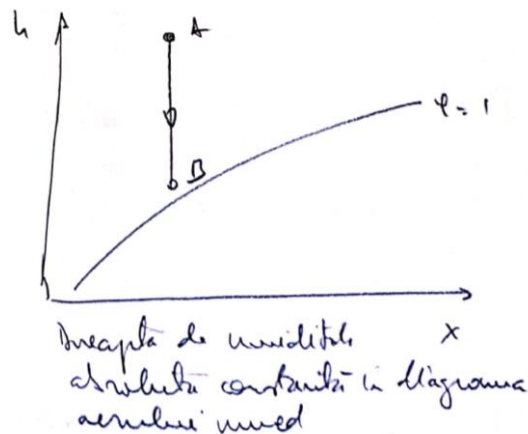 h
A
φ = 1
B
X
Dreaptă de umiditate
absolută constantă în diagrama
aerului umed